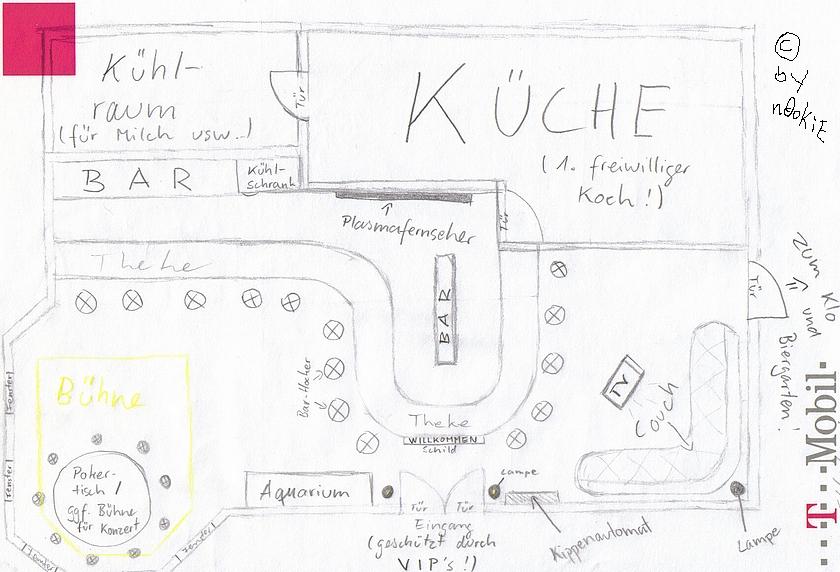 Kühl-
raum
(für Milch usw..)
Tür
KÜCHE
(1. freiwilliger
Koch!)
© by nOokiE
BAR
Kühl-
schrank
Plasmafernseher
Tür
Theke
BAR
Tür
zum Klo
und
Biergarten!
Fenster
Bühne
Bar-Hocker
TV
Couch
Theke
WILLKOMMEN
Schild
Poker-
tisch /
ggf. Bühne
für Konzert
Fenster
Aquarium
Lampe
Tür Tür
Eingang
(geschützt durch
VIP's!)
Kippenautomat
Lampe
Fenster
Fenster
T Mobil